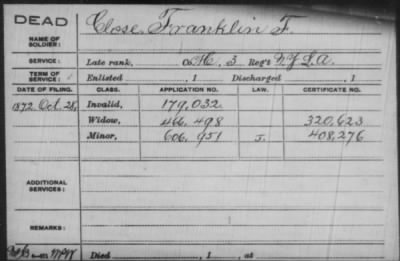 DEAD Close, Franklin F.
NAME OF SOLDIER:
SERVICE: Late rank, Co H, 3 Reg't N.Y. L.A.
TERM OF SERVICE: Enlisted , 1 Discharged , 1
DATE OF FILING. CLASS. APPLICATION NO. LAW. CERTIFICATE NO.
1872 Oct. 28, Invalid, 179,032
Widow, 466,498 320,623
Minor, 606,951 J. 408,276
ADDITIONAL SERVICES:
REMARKS:
Died , 1 , at